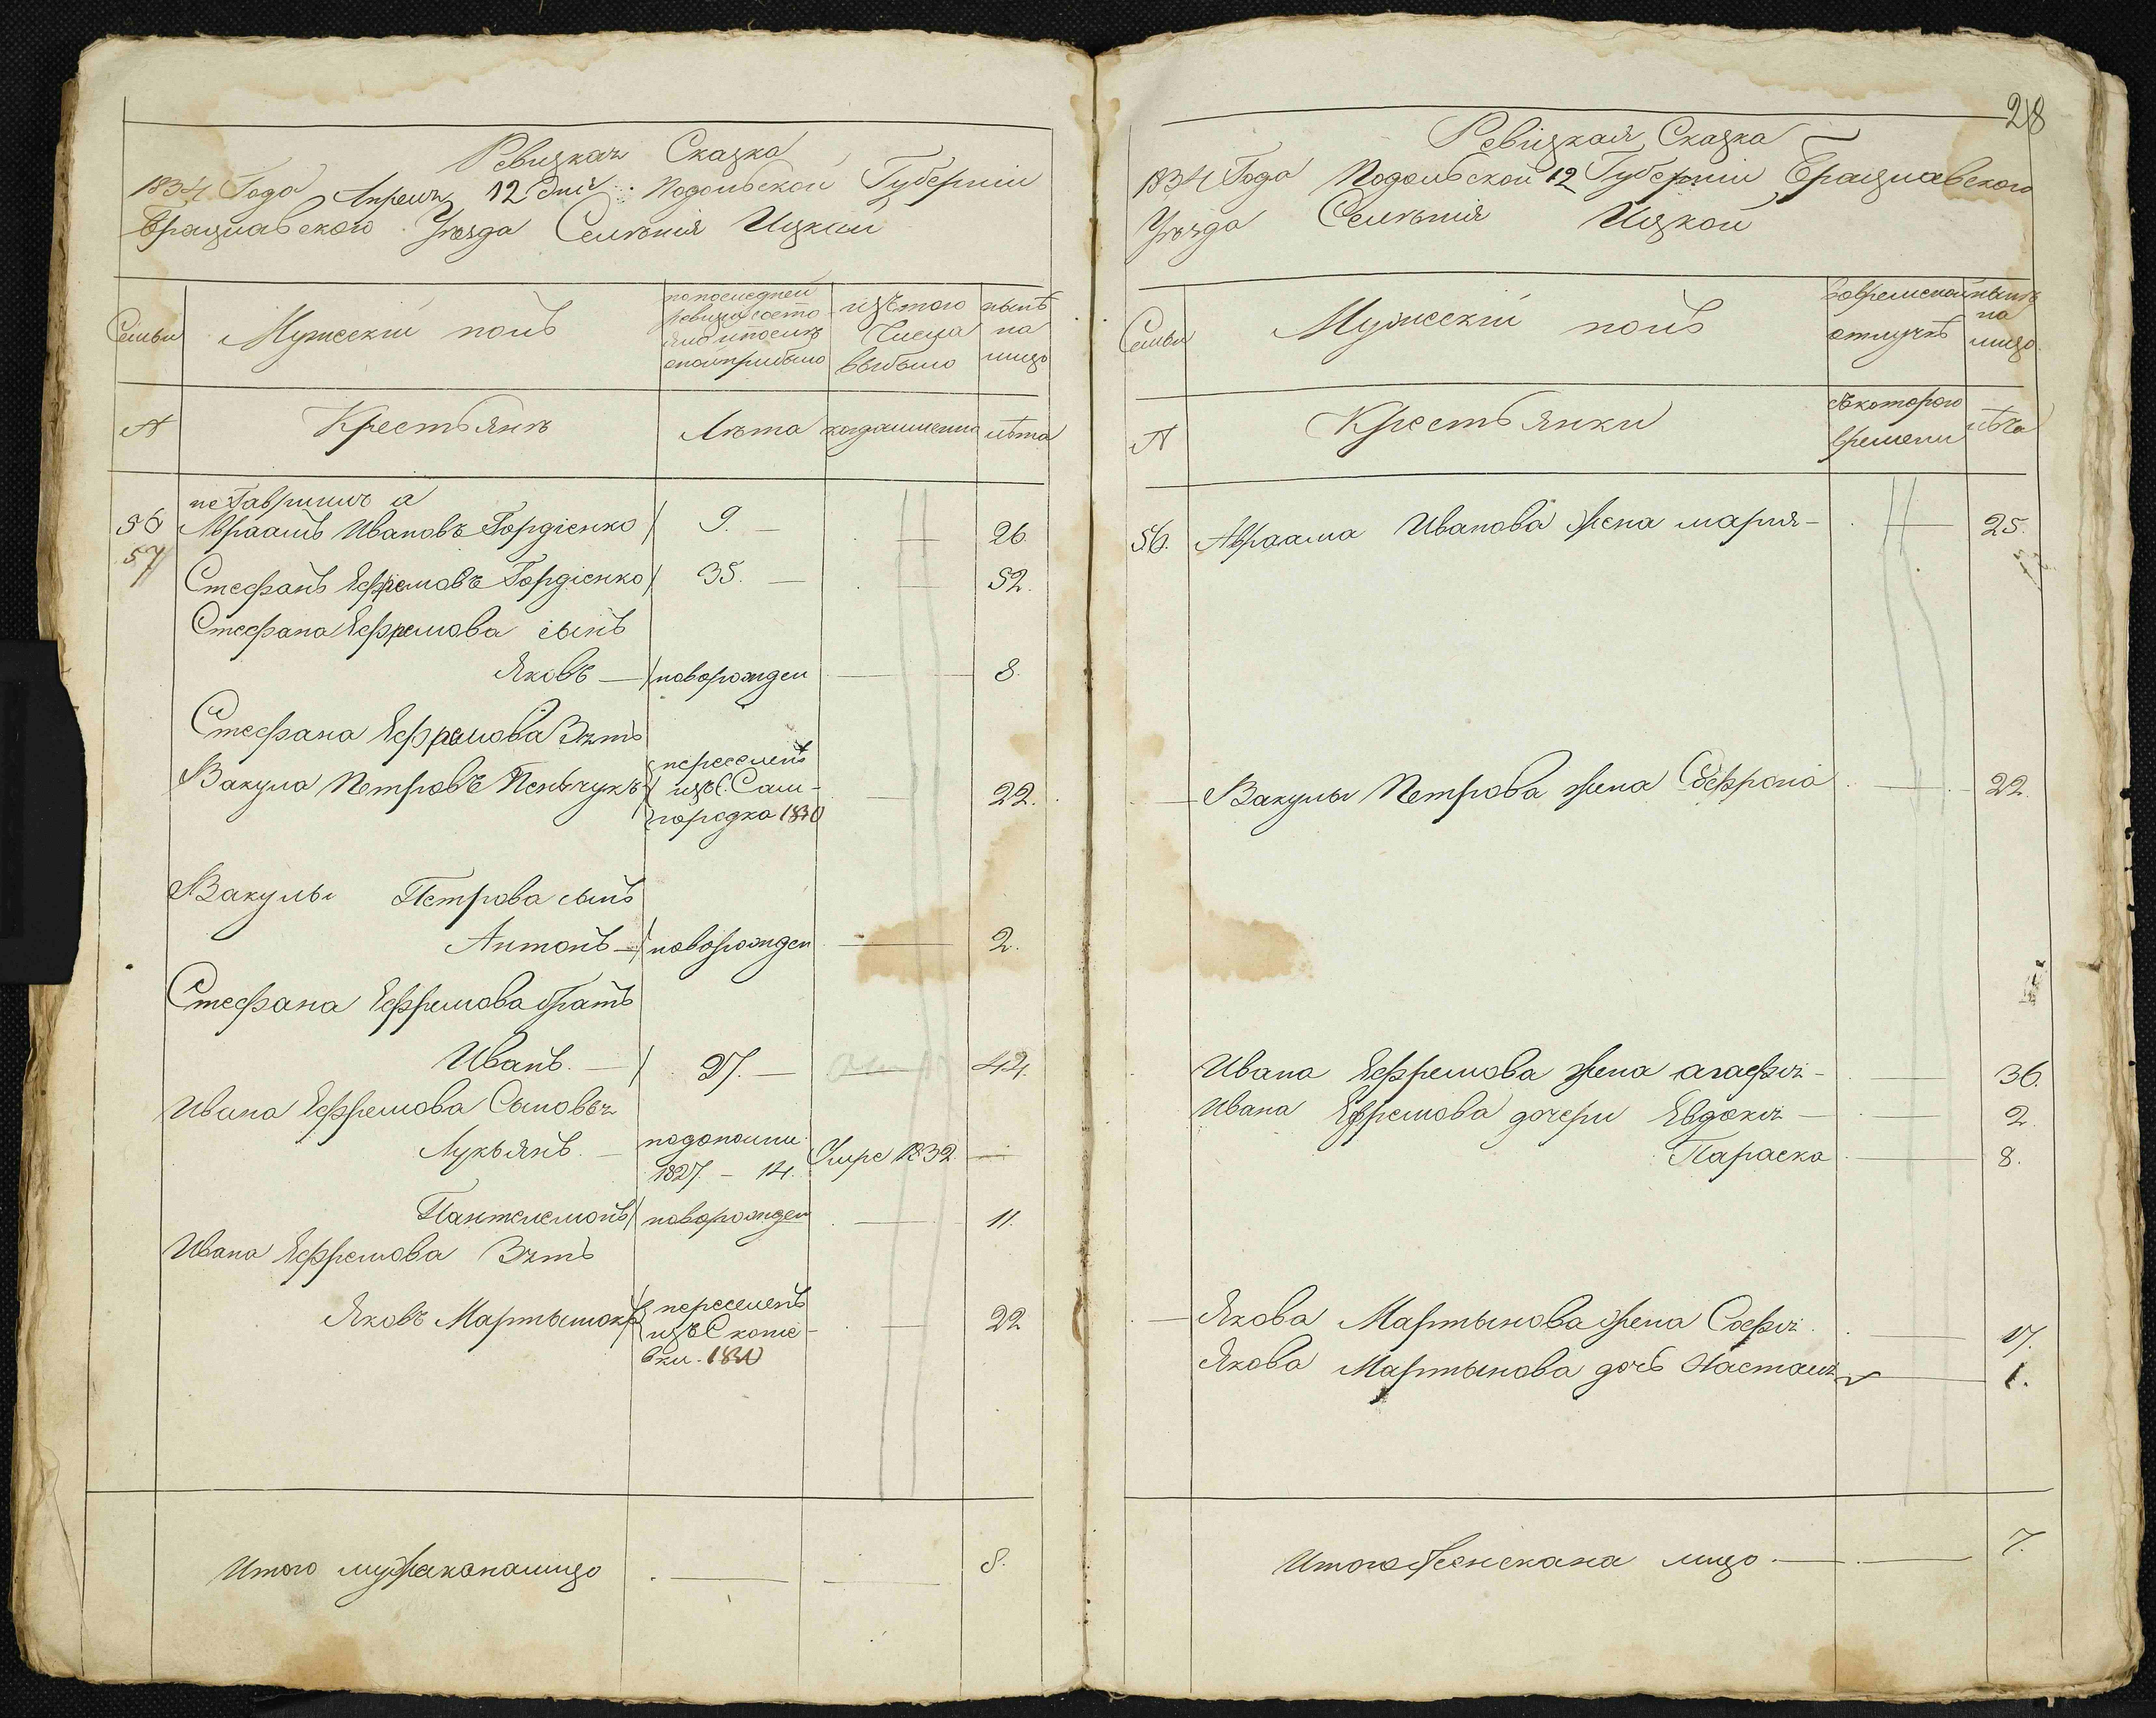 Ревизкая Сказка
1834 Года Апреля 12 дня Подольской Губернiи
Брацлавского Уезда Селѣнiя Ицкой
Семьи
Мужескiй полъ
по последней
ревизiи состо-
яло и после
оной прибыло
изътого
Числа
выбыло
нынѣ
на
лицо
А
Крестьянѣ
Лѣта
когдаименно
лѣта
не Гавриилъ а
56 Авраамъ Ивановъ Гордiенко 9. — 26
57 Стефанъ Ефремовъ Гордiенко 35. — 52.
Стефана Ефремова сынъ
Яковъ — новорожден — 8.
Стефана Ефремова Зять
Вакула Петровъ Пеньчукъ
переселенъ
изъ С. Сам-
городка 1830
22.
Вакулы Петрова сынъ
Антонъ — новорожден — 2.
Стефана Ефремова братъ
Иванъ. — 27. — 44.
Ивана Ефремова Сыновья
Лукьянъ. —
подополни
1827. — 14.
Умре 1832. —
Пантелемонъ новорожден — 11.
Ивана Ефремова Зять
Яковъ Мартынюкъ
переселенъ
изъ Скоме-
вки. 1830
22
Итого мужеска налицо — 8.
28
Ревiзкая Сказка
1834 Года Подольской 12 Губернiи Брацлавского
Уезда Селѣнiя Ицкой
Семьи
Мужескiй полъ
вовременой
отлучкѣ
нынѣ
на
лицо.
А
Крестьянки
съкоторого
времени
лѣта
56. Авраама Иванова жена Мария — 25.
— Вакулы Петрова жена Ефронiа — 22.
Ивана Ефремова жена агафия — 36.
Ивана Ефремова дочери Евдокия — 2.
Параска — 8.
— Якова Мартынова жена София — 17.
Якова Мартынова дочь Настасия — 1.
Итого женска на лицо — 7.